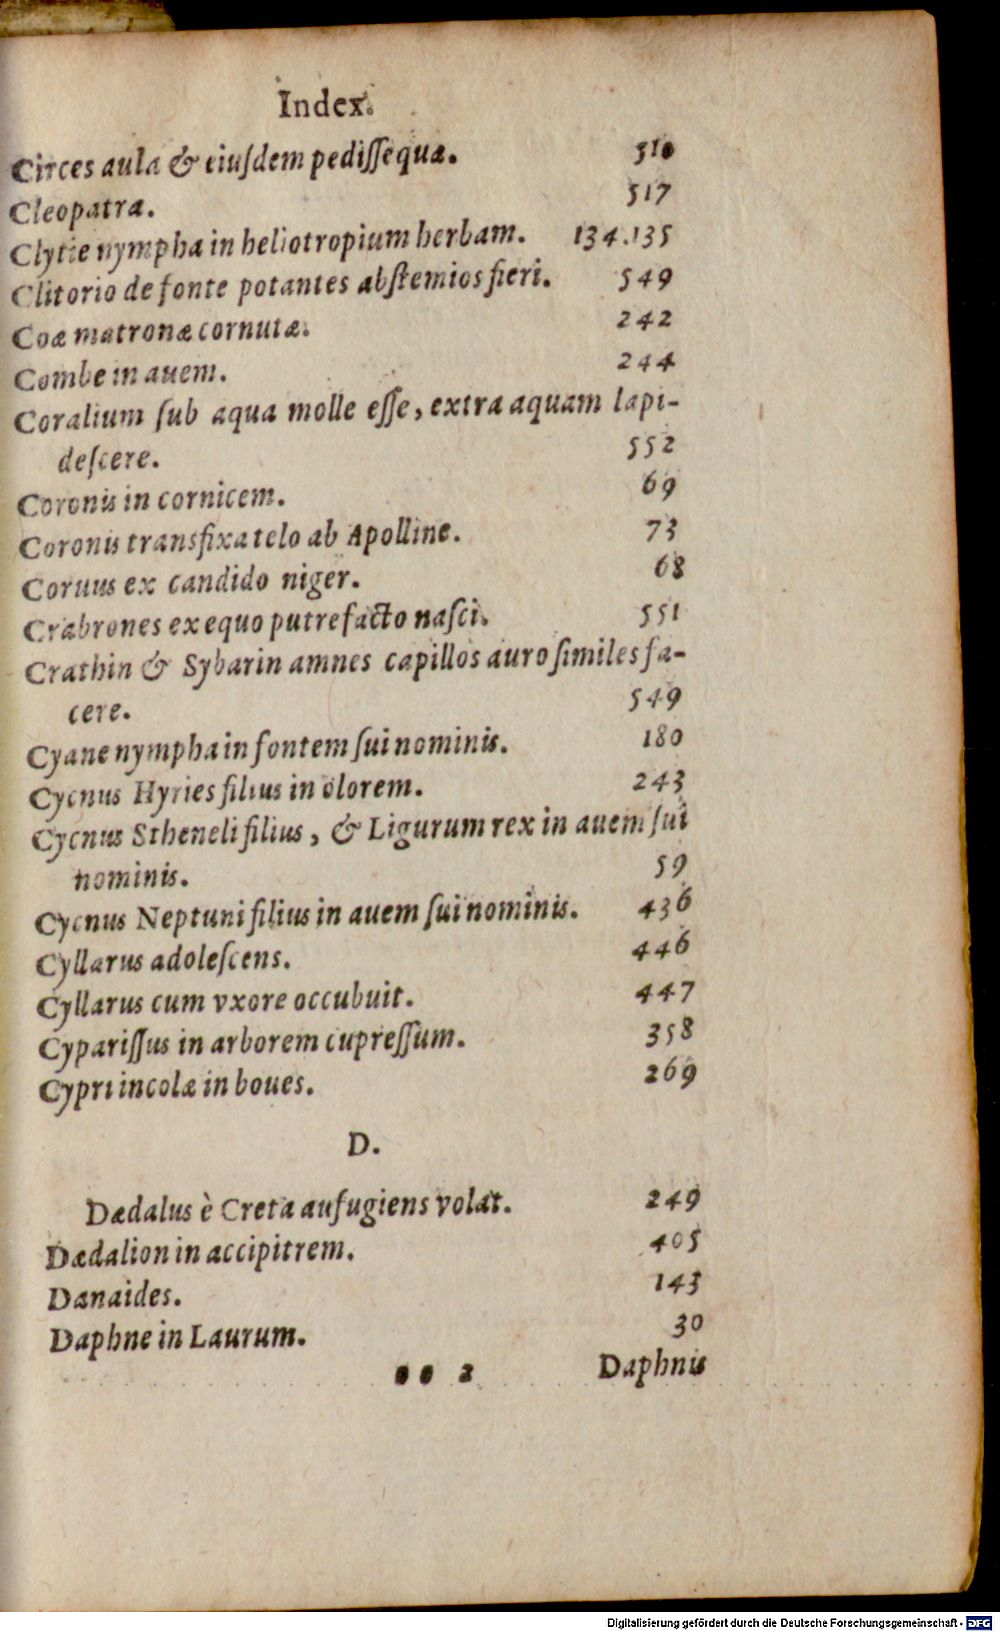 Index.
Circes aula & eiuſdem pediſſequæ. 510
Cleopatra. 517
Clytie nympha in heliotropium herbam. 134.135
Clitorio de fonte potantes abſtemios fieri. 549
Coæ matronæ cornutæ. 242
Combe in auem. 244
Coralium ſub aqua molle eſſe, extra aquam lapi-
deſcere. 552
Coronis in cornicem. 69
Coronis transfixa telo ab Apolline. 73
Coruus ex candido niger. 68
Crabrones ex equo putrefacto naſci. 551
Crathin & Sybarin amnes capillos auro ſimiles fa-
cere. 549
Cyane nympha in fontem ſui nominis. 180
Cycnus Hyries filius in olorem. 243
Cycnus Stheneli filius, & Ligurum rex in auem ſui
nominis. 59
Cycnus Neptuni filius in auem ſui nominis. 436
Cyllarus adoleſcens. 446
Cyllarus cum vxore occubuit. 447
Cypariſſus in arborem cupreſſum. 358
Cypri incolæ in boues. 269
D.
Dædalus è Creta aufugiens volat. 249
Dædalion in accipitrem. 405
Danaides. 143
Daphne in Laurum. 30
2 Daphnis
Digitalisierung gefördert durch die Deutsche Forschungsgemeinschaft - DFG